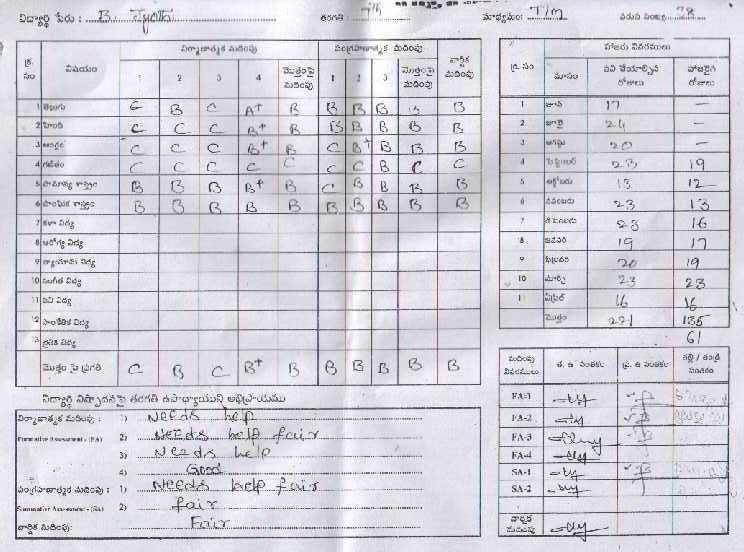 విద్యార్థి పేరు : B. Jyothi తరగతి : 7th మాధ్యమం: T/m వరుస సంఖ్య: 28
నిర్మాణాత్మక మదింపు సంగ్రహణాత్మక మదింపు వార్షిక మదింపు
క్ర. సం విషయం 1 2 3 4 మొత్తంపై మదింపు 1 2 3 మొత్తంపై మదింపు
1 తెలుగు C B C A+ B B B B B B
2 హిందీ C C C B+ B B B B B B
3 ఆంగ్లం C C C B+ B C B+ B B B
4 గణితం C C C C C C C B C C
5 సామాన్య శాస్త్రం B B B B+ B C B B B B
6 సాంఘిక శాస్త్రం B B B B B B B B B B
7 కళా విద్య
8 ఆరోగ్య విద్య
9 వ్యాయామ విద్య
10 సంగీత విద్య
11 పని విద్య
12 సాంకేతిక విద్య
13 నైతిక విద్య
మొత్తం పై ప్రగతి C B C B+ B B B B B B
హాజరు వివరములు
క్ర. సం మాసం పని చేయాల్సిన రోజులు హాజరైన రోజులు
1 జూన్ 17 —
2 జూలై 24 —
3 ఆగష్టు 20 —
4 సెప్టెంబర్ 23 19
5 అక్టోబరు 13 12
6 నవంబరు 23 13
7 డిసెంబరు 23 16
8 జనవరి 19 17
9 ఫిబ్రవరి 20 19
10 మార్చి 23 23
11 ఏప్రిల్ 16 16
మొత్తం 221 135
61
విద్యార్థి నిష్పాదనపై తరగతి ఉపాధ్యాయుని అభిప్రాయము
నిర్మాణాత్మక మదింపు : 1) Needs help
Formative Assessment - (FA) 2) Needs help fair
3) Needs help
4) Good
సంగ్రహణాత్మక మదింపు : 1) Needs help fair
Summative Assessment - (SA) 2) fair
వార్షిక మదింపు: Fair
మదింపు వివరములు త. ఉ సంతకం ప్ర. ఉ సంతకం తల్లి / తండ్రి సంతకం
FA-1
FA-2
FA-3
FA-4
SA-1
SA-2
వార్షిక మదింపు